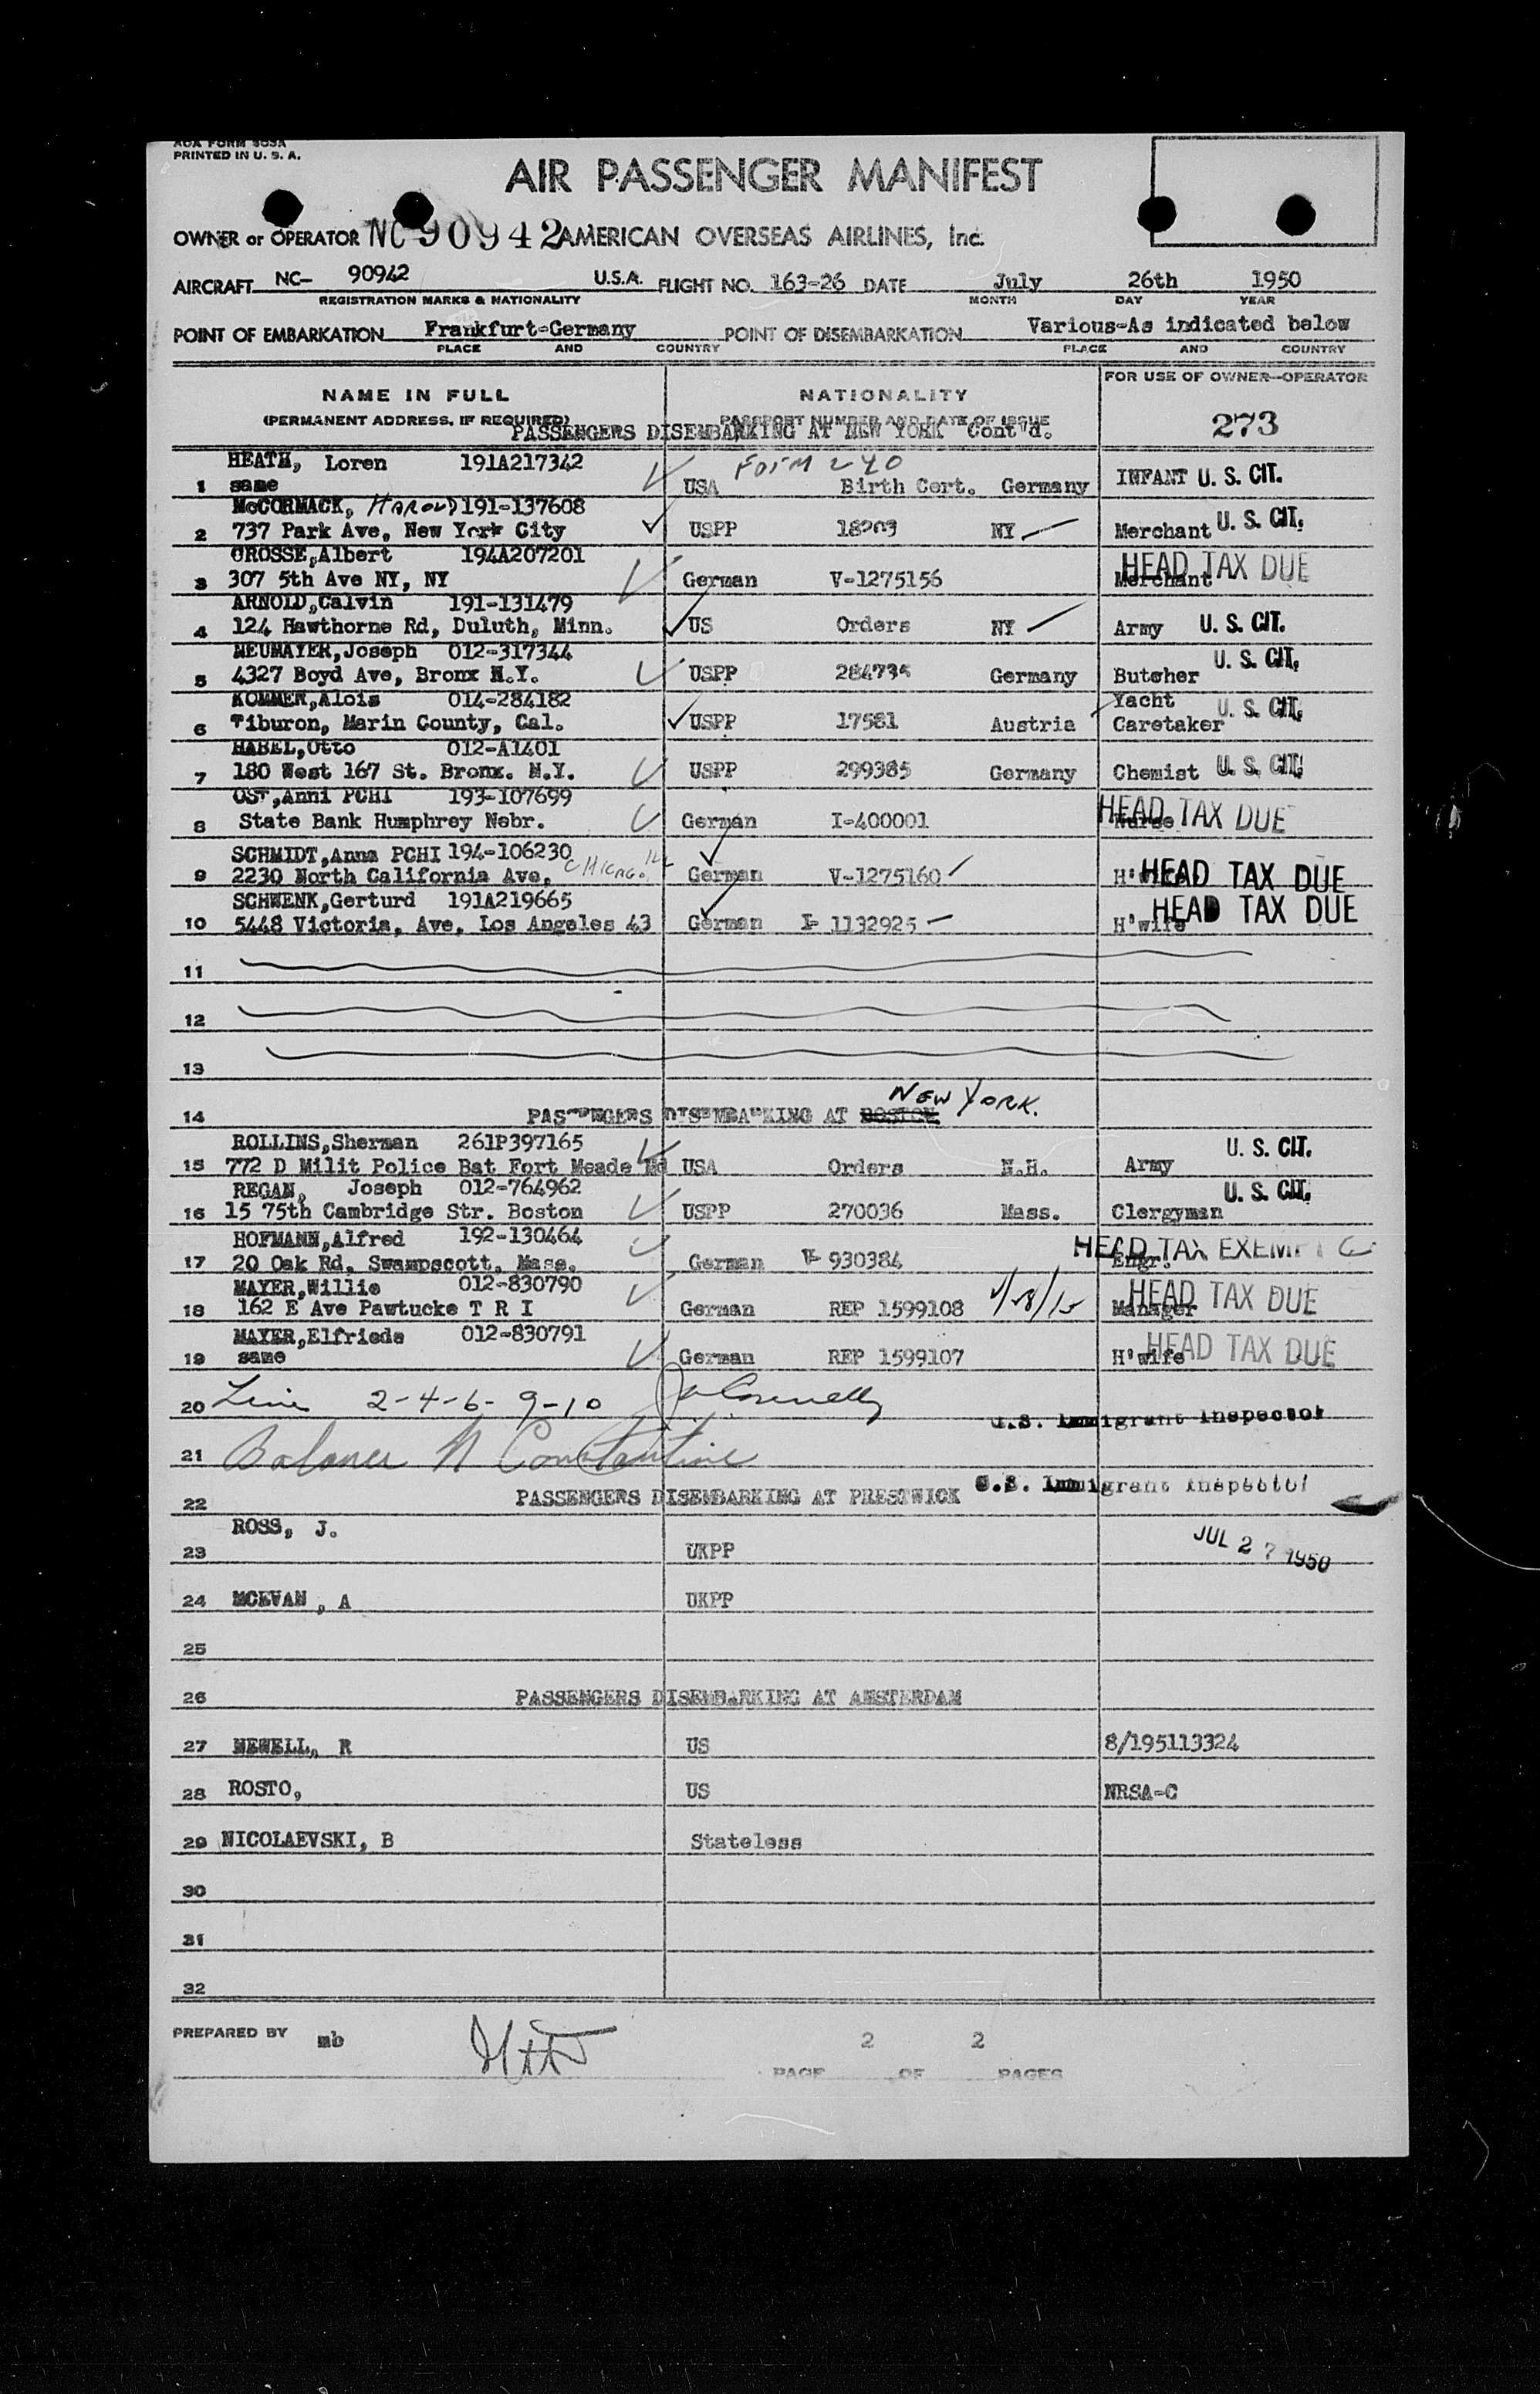 AOA FORM 805A
PRINTED IN U. S. A.
AIR PASSENGER MANIFEST
OWNER or OPERATOR NC 90942 AMERICAN OVERSEAS AIRLINES, Inc.
AIRCRAFT NC- 90942 U.S.A. FLIGHT NO. 163-26 DATE July 26th 1950
REGISTRATION MARKS & NATIONALITY MONTH DAY YEAR
POINT OF EMBARKATION Frankfurt-Germany POINT OF DISEMBARKATION Various-As indicated below
PLACE AND COUNTRY PLACE AND COUNTRY
FOR USE OF OWNER-OPERATOR
NAME IN FULL NATIONALITY
(PERMANENT ADDRESS, IF REQUIRED) PASSPORT NUMBER AND DATE OF ISSUE 273
PASSENGERS DISEMBARKING AT NEW YORK Cont'd.
HEATH, Loren 191A217342 FORM 240
1 same USA Birth Cert. Germany INFANT U. S. CIT.
McCORMACK, HAROLD 191-137608
2 737 Park Ave, New York City USPP 18203 NY Merchant U. S. CIT.
GROSSE,Albert 194A207201 HEAD TAX DUE
3 307 5th Ave NY, NY German V-1275156 Merchant
ARNOLD,Calvin 191-131479
4 124 Hawthorne Rd, Duluth, Minn. US Orders NY Army U. S. CIT.
NEUMAYER,Joseph 012-317344 U. S. CIT.
5 4327 Boyd Ave, Bronx N.Y. USPP 284735 Germany Butcher
KOMMER,Alois 014-284182 Yacht U. S. CIT.
6 Tiburon, Marin County, Cal. USPP 17581 Austria Caretaker
HABEL,Otto 012-A1401
7 180 West 167 St. Bronx. N.Y. USPP 299385 Germany Chemist U. S. CIT.
OST,Anni PCHI 193-107699 HEAD TAX DUE
8 State Bank Humphrey Nebr. German I-400001 Nurse
SCHMIDT,Anna PCHI 194-106230
9 2230 North California Ave, CHICAGO. ILL German V-1275160 H'wife HEAD TAX DUE
SCHWENK,Gerturd 191A219665 HEAD TAX DUE
10 5448 Victoria, Ave, Los Angeles 43 German I- 1132925 H'wife
11
12
13
NEW YORK.
14 PASSENGERS DISEMBARKING AT BOSTON
ROLLINS,Sherman 261P397165 U. S. CIT.
15 772 D Milit Police Bat Fort Meade Md USA Orders N.H. Army
REGAN, Joseph 012-764962 U. S. CIT.
16 15 75th Cambridge Str. Boston USPP 270036 Mass. Clergyman
HOFMANN,Alfred 192-130464 HEAD TAX EXEMPT
17 20 Oak Rd. Swampscott, Mass. German V- 930384 Engr.
MAYER,Willie 012-830790 HEAD TAX DUE
18 162 E Ave Pawtucke T R I German REP 1599108 Manager
MAYER,Elfriede 012-830791 HEAD TAX DUE
19 same German REP 1599107 H'wife
20 Line 2-4-6-9-10
U.S. Immigrant Inspector
21 Balance N Constantine
U.S. Immigrant Inspector
22 PASSENGERS DISEMBARKING AT PRESTWICK
ROSS, J. JUL 27 1950
23 UKPP
24 MCEVAN , A UKPP
25
26 PASSENGERS DISEMBARKING AT AMSTERDAM
27 NEWELL, R US 8/195113324
28 ROSTO, US NRSA-C
29 NICOLAEVSKI, B Stateless
30
31
32
PREPARED BY mb 2 2
PAGE OF PAGES